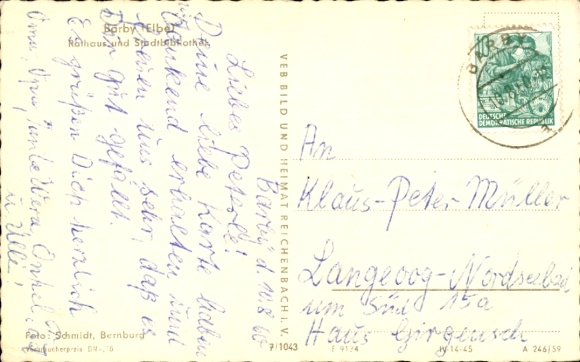 Barby (Elbe)
Rathaus und Stadtbibliothek
Barby, d. 11.8.60
Liebes Peterle!
Deine liebe Karte haben
dankend erhalten und
freuen uns sehr, daß es
Dir gut gefällt.
Es grüßen Dich herzlich
Oma, Opa, Onkel
u.
Foto: Schmidt, Bernburg
VEB BILD UND HEIMAT REICHENBACH I. V.
7/1043
BARBY
10
5
DEUTSCHE
DEMOKRATISCHE REPUBLIK
An
Klaus-Peter Müller
Langeoog-Nordseebad
um Süd 15a
Haus
IV-14-45
A 246/59